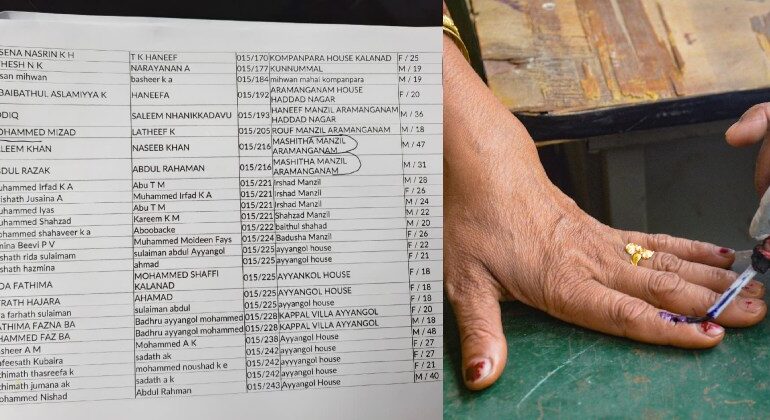 SENA NASRIN K H T K HANEEF 015/170 KOMPANPARA HOUSE KALANAD F / 25
THESH N K NARAYANAN A 015/177 KUNNUMMAL M / 19
san mihwan basheer k a 015/184 mihwan mahal kompanpara M / 19
BAIBATHUL ASLAMIYYA K HANEEFA 015/192 ARAMANGANAM HOUSE F / 20
HADDAD NAGAR
DDIQ SALEEM NHANIKKADAVU 015/193 HANEEF MANZIL ARAMANGANAM M / 36
HADDAD NAGAR
OHAMMED MIZAD LATHEEF K 015/205 ROUF MANZIL ARAMANGANAM M / 18
LEEM KHAN NASEEB KHAN 015/216 MASHITHA MANZIL M / 47
ARAMANGANAM
BDUL RAZAK ABDUL RAHAMAN 015/216 MASHITHA MANZIL M / 31
ARAMANGANAM
uhammed Irfad K A Abu T M 015/221 Irshad Manzil M / 28
rishath Jusaina A Muhammed Irfad K A 015/221 Irshad Manzil F / 26
uhammed Iyas Abu T M 015/221 Irshad Manzil M / 24
uhammed Shahzad Kareem K M 015/221 Shahzad Manzil M / 22
ohammed shahaveer k a Aboobacke 015/222 baithul shahad M / 20
mina Beevi P V Muhammed Moideen Fays 015/224 Badusha Manzil F / 26
shath rida sulaimam sulaiman abdul Ayyangol 015/225 ayyangol house F / 22
shath hazmina ahmad 015/225 ayyangol house F / 21
DA FATHIMA MOHAMMED SHAFFI 015/225 AYYANKOL HOUSE F / 18
KALANAD
TRATH HAJARA AHAMAD 015/225 AYYANGOL HOUSE F / 18
ra farhath sulaiman sulaiman abdul 015/225 ayyangol house F / 20
ATHIMA FAZNA BA Badhru ayyangol mohammed 015/228 KAPPAL VILLA AYYANGOL F / 18
HAMMED FAZ BA Badhru ayyangol mohammed 015/228 KAPPAL VILLA AYYANGOL M / 18
sheer A M Mohammed A K 015/238 Ayyangol House M / 48
afeesath Kubaira sadath ak 015/242 ayyangol house F / 27
thimath thasreefa k mohammed noushad k e 015/242 ayyangol house F / 27
thimath jumana ak sadath a k 015/242 ayyangol house F / 21
ohammed Nishad Abdul Rahman 015/243 Ayyangol House M / 40